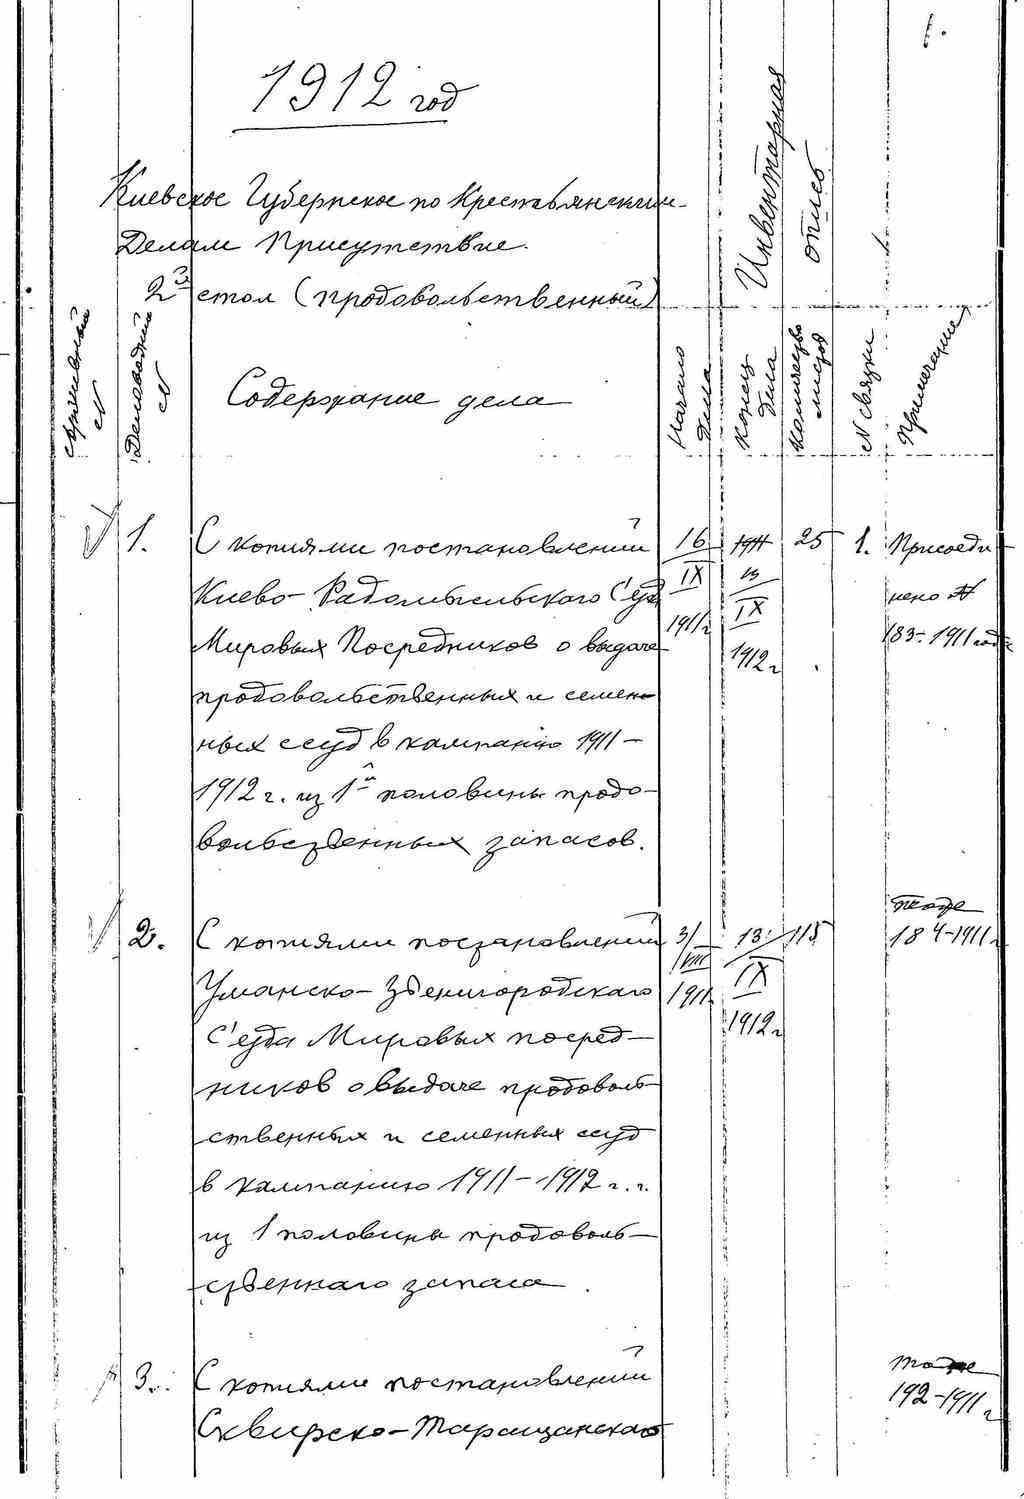 1.
1912 год
Инвентарная
опись
Киевское Губернское по Крестьянским
Делам Присутствие.
2й стол (продовольственный)
Архивный
N
Деловодный
N
Содержание дела
Начало
дела
конец
дела
количество
листов
N связки
Примечание
1. С копиями постановлений 16 1911 25 1. Присоеди
Киево-Радомысльского С'езда IX 13 нено N
Мировых Посредников о выдаче 1911г IX 183-1911 года
продовольственных и семен- 1912г
ных ссуд в кампанию 1911-
1912 г. из 1й половины продо-
вольственных запасов.
тоже
2. С копиями постановлений 3/VIII 13 115 184-1911 г
Уманско-Звенигородского 1911г IX
С'езда Мировых посред- 1912г
ников о выдаче продоволь-
ственных и семенных ссуд
в кампанию 1911-1912 г.г.
из 1 половины продоволь-
ственнаго запаса.
тоже
3. С копиями постановлений 192-1911 г
Сквирско-Таращанского